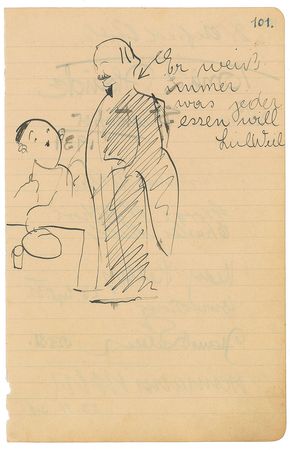 101.
Er weiß
immer
was jeder
essen will